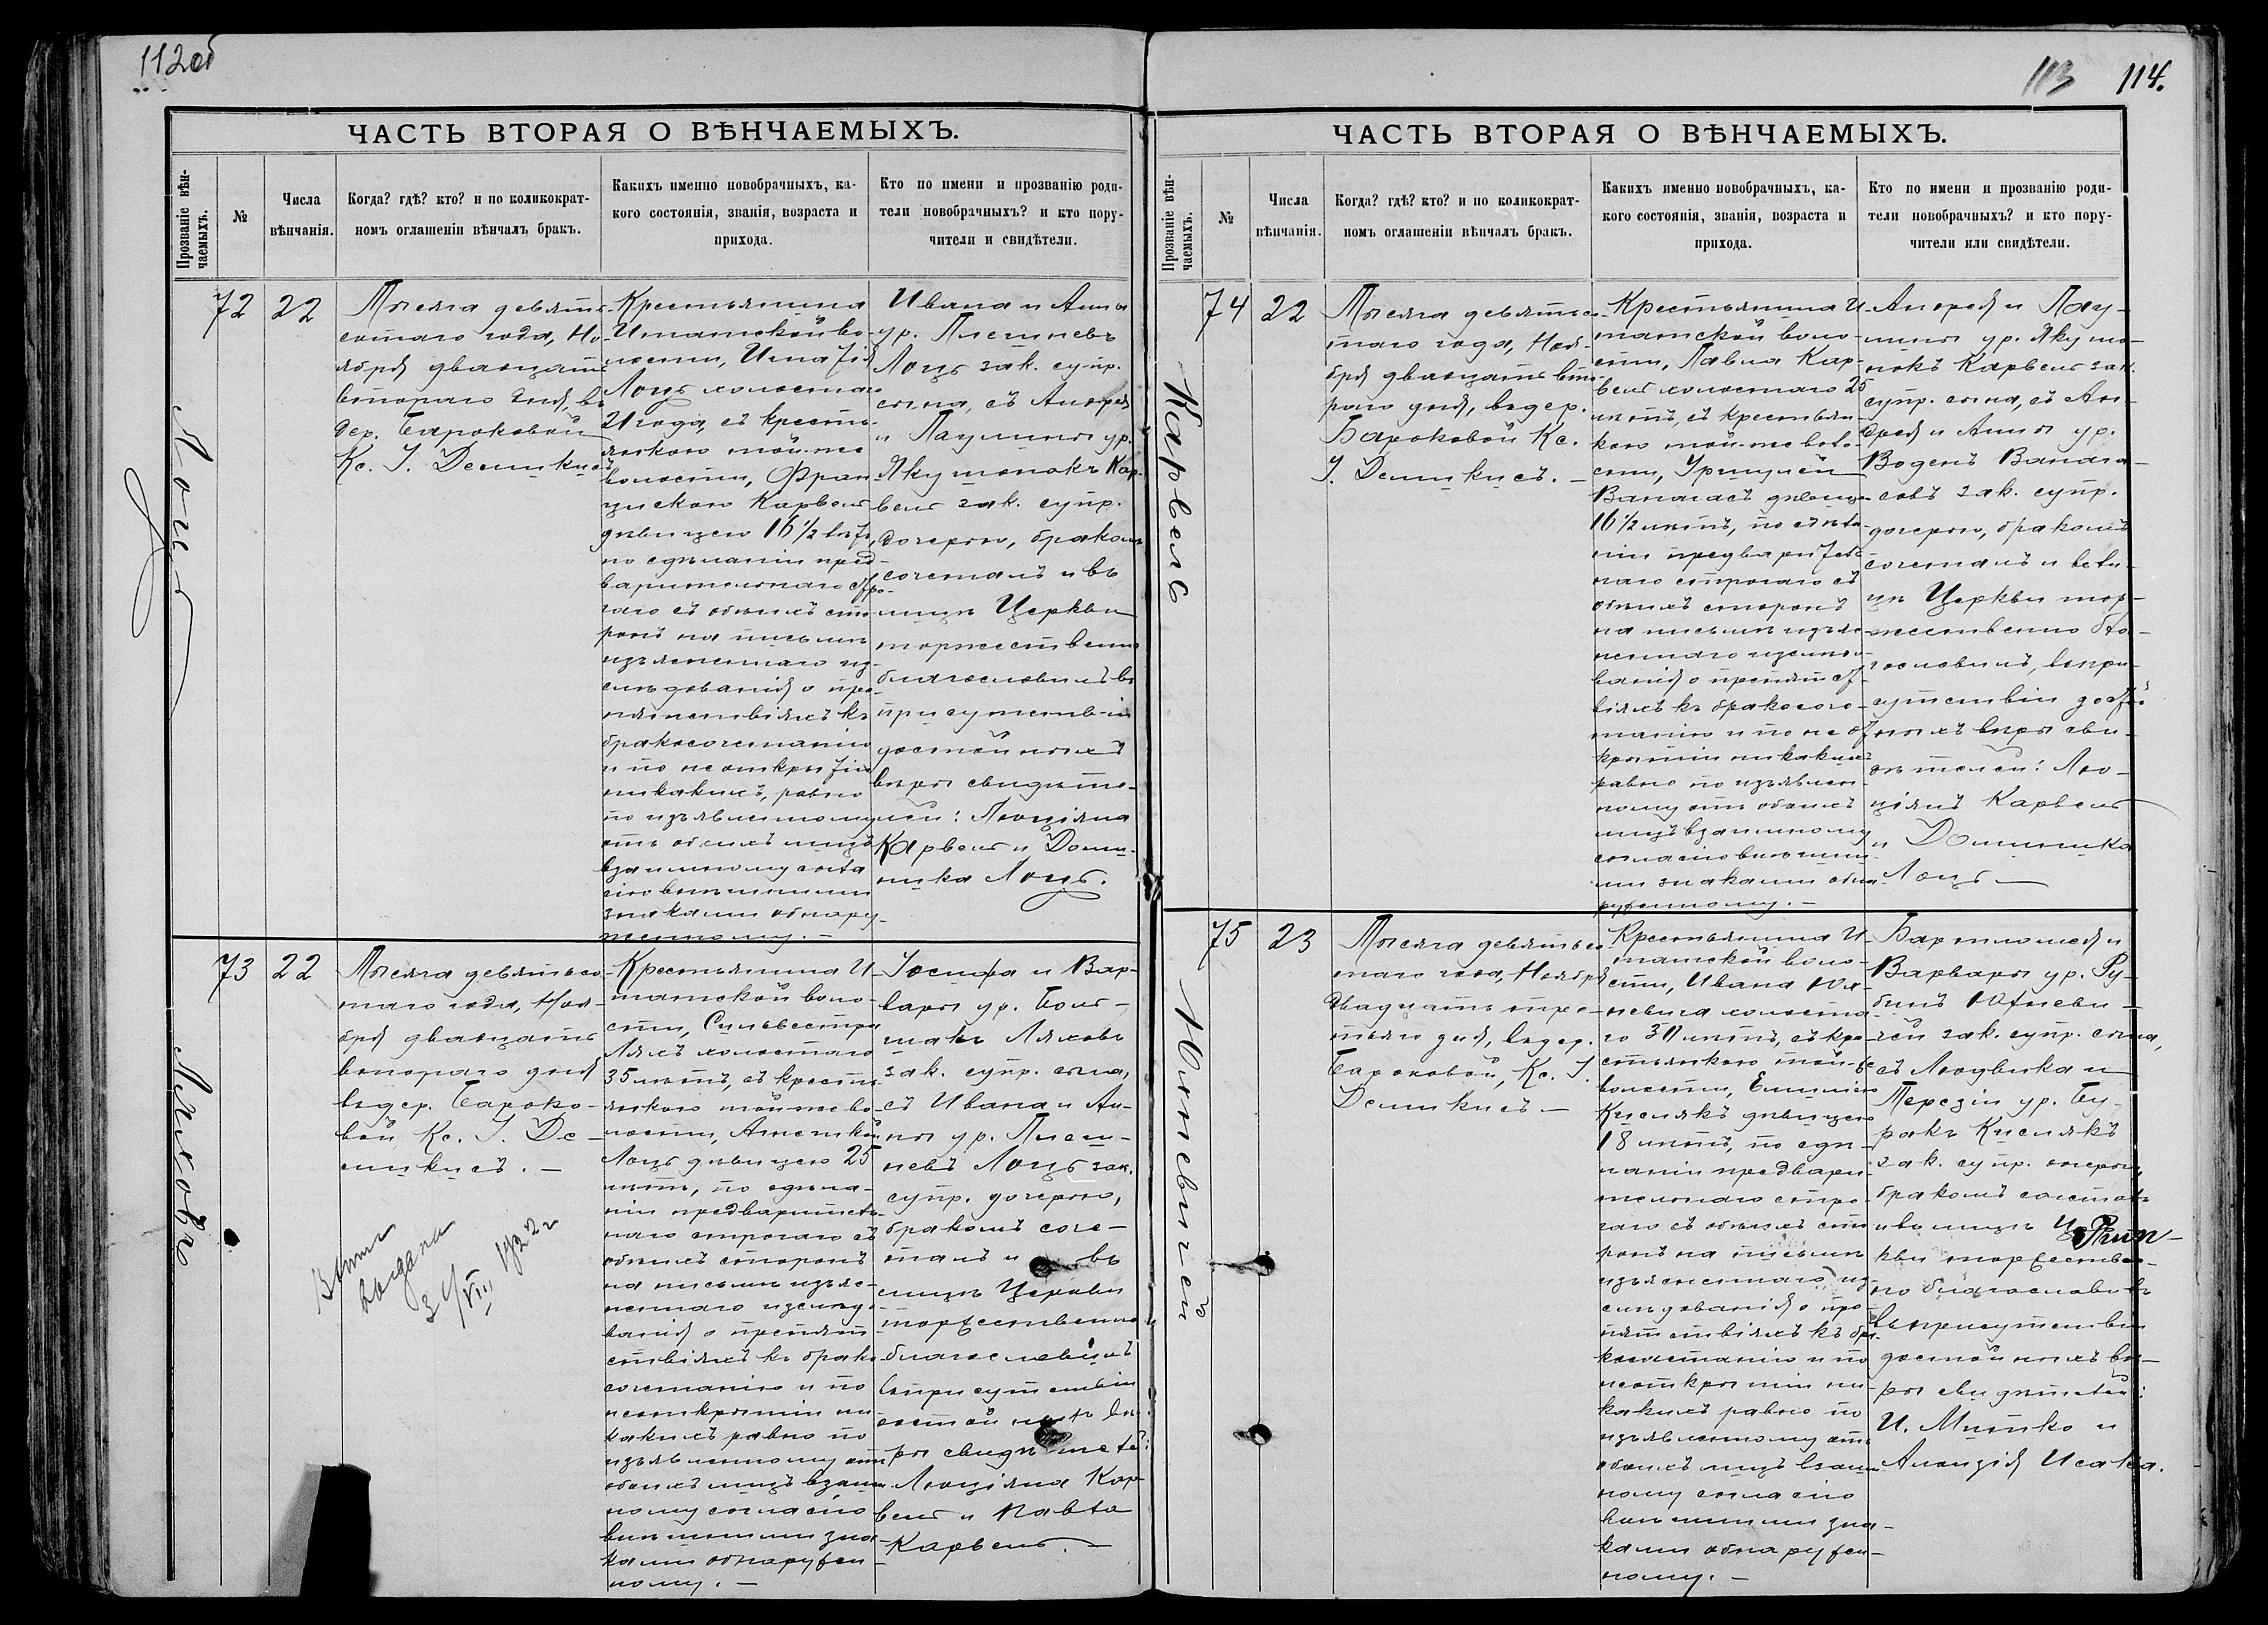 112об
ЧАСТЬ ВТОРАЯ О ВѢНЧАЕМЫХЪ.
Прозваніе вѣн-
чаемыхъ.
№
Числа
вѣнчанія.
Когда? гдѣ? кто? и по коликократ-
номъ оглашеніи вѣнчалъ бракъ.
Какихъ именно новобрачныхъ, ка-
кого состоянія, званія, возраста и
прихода.
Кто по имени и прозванію роди-
тели новобрачныхъ? и кто пору-
чители и свидѣтели.
Лоцъ
72
22
Тысяча девять-
сотаго года, Но-
ября двадцать
втораго дня, въ
дер. Бароковой
Кс. І. Демикисъ
Крестьянина
Итатской во-
лости, Игнатія
Лоцъ холостаго
21 года, съ кресть-
янкою той-же
волости, Фран-
цискою Карвель
дѣвицею 16½ лѣтъ,
по сдѣланіи пред-
варительнаго стро-
гаго съ обѣихъ сто-
ронъ на письмѣ
изъясненнаго из-
слѣдованія о пре-
пятствіяхъ къ
бракосочетанію
и по неоткрытіи
никакихъ, равно
по изъявленному
отъ обоихъ лицъ
взаимному согла-
сію внѣшними
знаками обнару-
женному. —
Ивана и Анны
ур. Плешневъ
Лоцъ зак. супр.
сына, съ Андрея
и Паулины ур.
Якушонокъ Кар-
вель зак. супр.
дочерью, бракомъ
сочеталъ и въ
лицѣ Церкви
торжественно
благословилъ въ
присутствіи
достойныхъ
вѣры свидѣте-
лей: Люціяна
Карвель и Доми-
ника Лоцъ.
Ляховъ
73
22
Тысяча девятьсо-
таго года, Ноя-
бря двадцать
втораго дня
въ дер. Бароко-
вой Кс. І. Де-
микисъ. —
выдана
31/VIII 1922 г
Крестьянина И-
татской воло-
сти, Сильвестра
Ляхъ холостаго
35 лѣтъ, съ кресть-
янкою той же во-
лости,
Лоцъ дѣвицею 25
лѣтъ, по сдѣла-
ніи предваритель-
наго строгаго съ
обѣихъ сторонъ
на письмѣ изъяс-
неннаго изслѣдо-
ванія о препят-
ствіяхъ къ брако-
сочетанію и по
неоткрытіи ни-
какихъ равно по
изъявленному отъ
обоихъ лицъ взаим-
ному согласію
внѣшними зна-
ками обнаружен-
ному. —
Іосифа и Вар-
вары ур. Боль-
шакъ Ляховъ
зак. супр. сына,
съ Ивана и Ан-
ны ур. Плеш-
невъ Лоцъ зак.
супр. дочерью,
бракомъ соче-
талъ и въ
лицѣ Церкви
торжественно
благословилъ
въ присутствіи
достойныхъ вѣ-
ры свидѣтелей:
Люціяна Кар-
вель и Павла
Карвель. —
113 114.
ЧАСТЬ ВТОРАЯ О ВѢНЧАЕМЫХЪ.
Прозваніе вѣн-
чаемыхъ.
№
Числа
вѣнчанія.
Когда? гдѣ? кто? и по коликократ-
номъ оглашеніи вѣнчалъ бракъ.
Какихъ именно новобрачныхъ, ка-
кого состоянія, званія, возраста и
прихода.
Кто по имени и прозванію роди-
тели новобрачныхъ? и кто пору-
чители или свидѣтели.
Карвель
74
22
Тысяча девятьсо-
таго года, Ноя-
бря двадцать вто-
раго дня, въ дер.
Бароковой Кс.
І. Демикисъ. —
Крестьянина И-
татской воло-
сти, Павла Кар-
вель холостаго 25
лѣтъ, съ крестьян-
кою той-же воло-
сти, Уршулей
Ванагасъ дѣвице-
16½ лѣтъ, по сдѣла-
ніи предваритель-
наго строгаго съ
обѣихъ сторонъ
на письмѣ изъяс-
неннаго изслѣдо-
ванія о препятст-
віяхъ къ бракосоче-
танію и по неот-
крытіи никакихъ
равно по изъявлен-
ному отъ обоихъ
лицъ взаимному
согласію внѣшни-
ми знаками обна-
руженному. —
Андрея и Пау-
лины ур. Якушо-
нокъ Карвель зак.
супр. сына, съ Ан-
дрея и Анны ур.
Воденъ Ванага-
совъ зак. супр.
дочерью, бракомъ
сочеталъ и въ ли-
цѣ Церкви тор-
жественно бла-
гословилъ, въ при-
сутствіи достой-
ныхъ вѣры сви-
дѣтелей: Лю-
ціянъ Карвель
и Доминика
Лоцъ —
Юхневичей
75
23
Тысяча девятьсо-
таго года, Ноября
двадцать тре-
тьяго дня, въ дер.
Бароковой, Кс. І.
Демикисъ —
Крестьянина И-
татской воло-
сти, Ивана Юх-
невича холоста-
го 30 лѣтъ, съ кре-
стьянкою той-же
волости, Емилію
Кислякъ дѣвицею
18 лѣтъ, по сдѣ-
ланіи предвари-
тельнаго стро-
гаго съ обѣихъ сто-
ронъ на письмѣ
изъясненнаго из-
слѣдованія о пре-
пятствіяхъ къ бра-
косочетанію и по
неоткрытіи ни-
какихъ равно по
изъявленному отъ
обоихъ лицъ взаим-
ному согласію
внѣшними зна-
ками обнаружен-
ному. —
Бартоломея и
Варвары ур. Ру-
бинъ Юхневи-
чей зак. супр. сына,
съ Людвика и
Терезіи ур. Бу-
ракъ Кислякъ
зак. супр. дочерью,
бракомъ сочеталъ
и въ лицѣ Цер-
кви торжествен-
но благословилъ
въ присутствіи
достойныхъ вѣ-
ры свидѣтелей:
И. Митко и
Алоизія Исака.